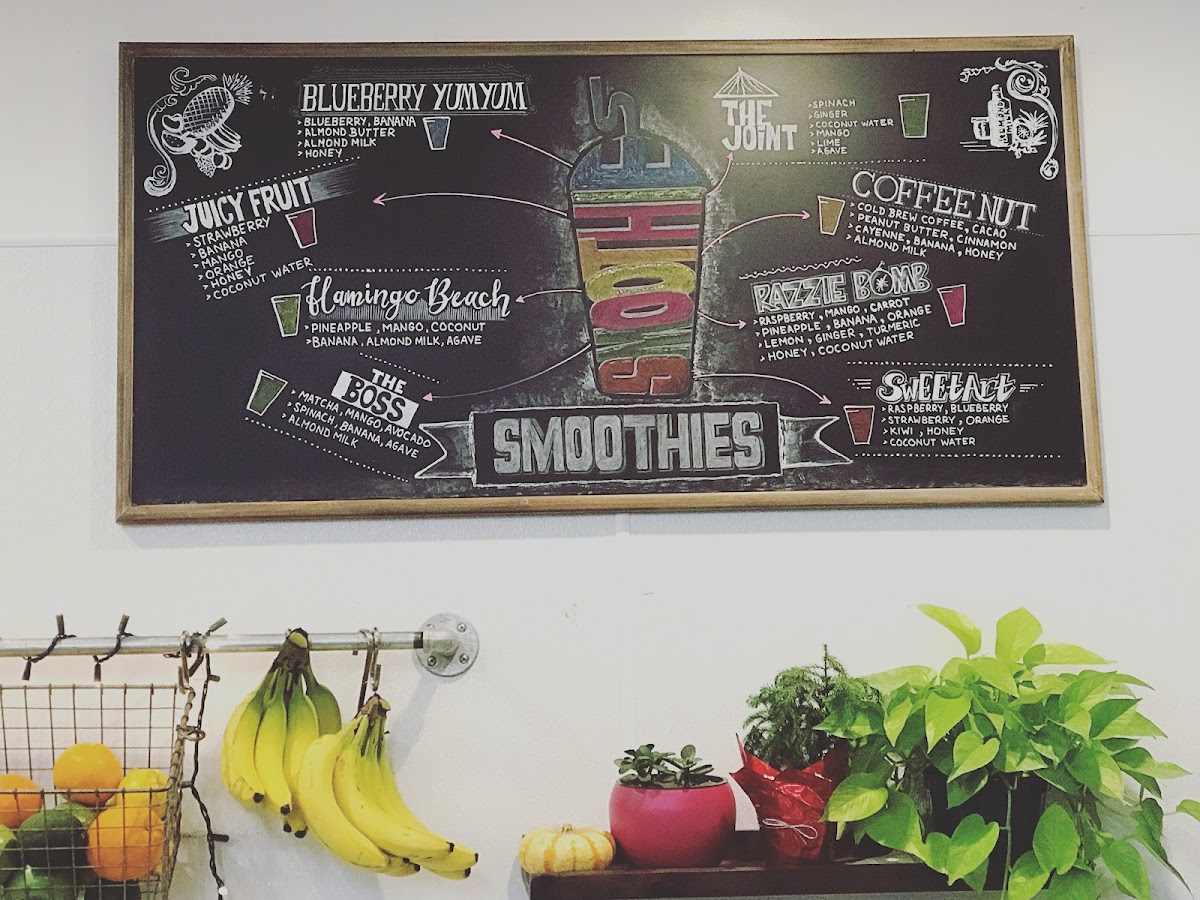 BLUEBERRY YUMYUM
>BLUEBERRY, BANANA
>ALMOND BUTTER
>ALMOND MILK
>HONEY
JUICY FRUIT
>STRAWBERRY
>BANANA
>MANGO
>ORANGE
>HONEY
>COCONUT WATER
Flamingo Beach
>PINEAPPLE, MANGO, COCONUT
>BANANA, ALMOND MILK, AGAVE
THE
BOSS
>MATCHA, MANGO, AVOCADO
>SPINACH, BANANA, AGAVE
>ALMOND MILK
SMOOTHIES
SMOOTHIES
THE
JOINT
>SPINACH
>GINGER
>COCONUT WATER
>MANGO
>LIME
>AGAVE
COFFEE NUT
>COLD BREW COFFEE, CACAO
>PEANUT BUTTER, CINNAMON
>CAYENNE, BANANA, HONEY
>ALMOND MILK
RAZZIE BOMB
>RASPBERRY, MANGO, CARROT
>PINEAPPLE, BANANA, ORANGE
>LEMON, GINGER, TURMERIC
>HONEY, COCONUT WATER
SWEEtArt
>RASPBERRY, BLUEBERRY
>STRAWBERRY, ORANGE
>KIWI, HONEY
>COCONUT WATER